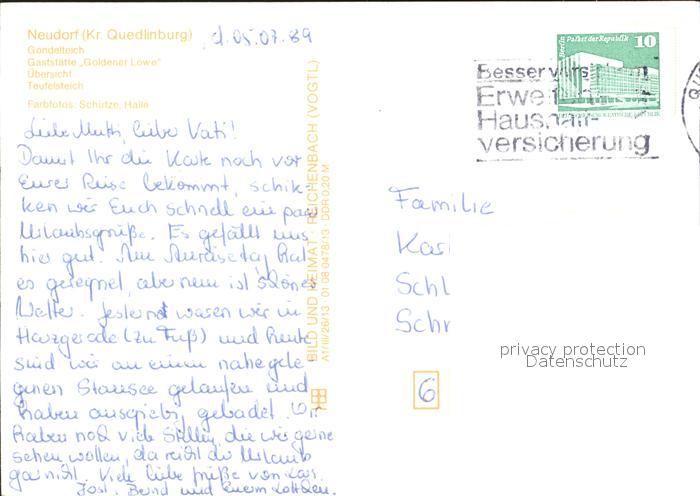 Neudorf (Kr. Quedlinburg)
Gondelteich
Gaststätte „Goldener Löwe"
Übersicht
Teufelsteich
Farbfotos: Schütze, Halle
d. 05.07.89
Liebe Mutti, lieber Vati!
Damit Ihr die Karte noch vor
Eurer Reise bekommt, schik-
ken wir Euch schnell ein paar
Urlaubsgrüße. Es gefällt uns
hier gut. Am Anreisetag hat
es geregnet, aber nun ist schönes
Wetter. Gestern waren wir in
Harzgerode (zu Fuß) und heute
sind wir an einem nahegele-
genen Stausee gelaufen und
haben ausgiebig gebadet. Wir
haben noch viele Stellen, die wir gerne
sehen wollen, da reicht der Urlaub
gar nicht. Viele liebe Grüße von
Bernd und
BILD UND HEIMAT · REICHENBACH (VOGTL)
A1/III/26/13 01 08 0478/13 DDR 0,20 M
Berlin Palast der Republik
10
Besser
Haus
versicherung
Familie
6
privacy protection
Datenschutz